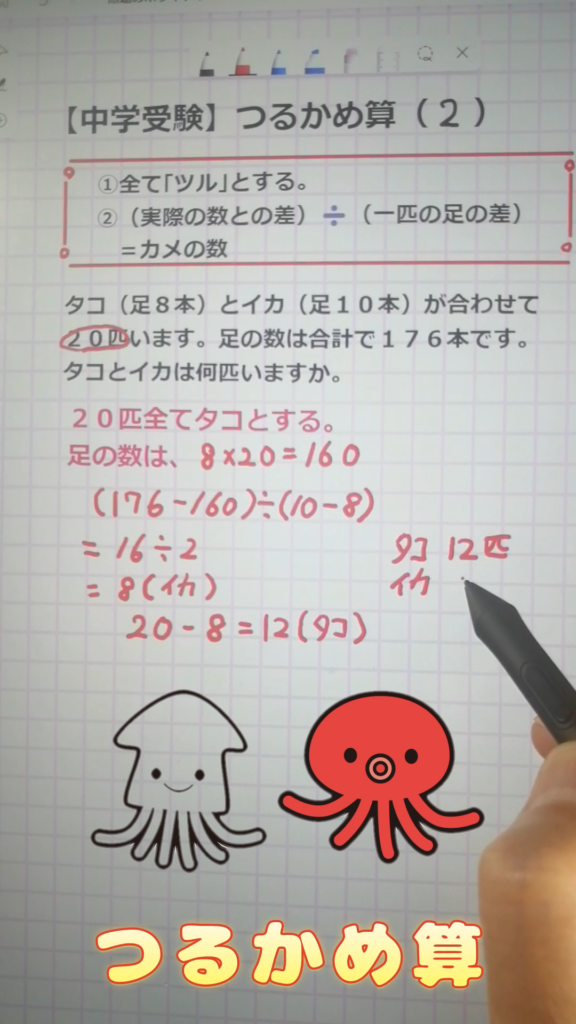 【中学受験】つるかめ算（２）
①全て｢ツル｣とする。
②（実際の数との差）÷（一匹の足の差）
＝カメの数
タコ（足８本）とイカ（足１０本）が合わせて
２０匹います。足の数は合計で１７６本です。
タコとイカは何匹いますか。
２０匹全てタコとする。
足の数は、8×20=160
(176-160)÷(10-8)
=16÷2
=8(イカ)
20-8=12(タコ)
タコ 12匹
イカ
つるかめ算